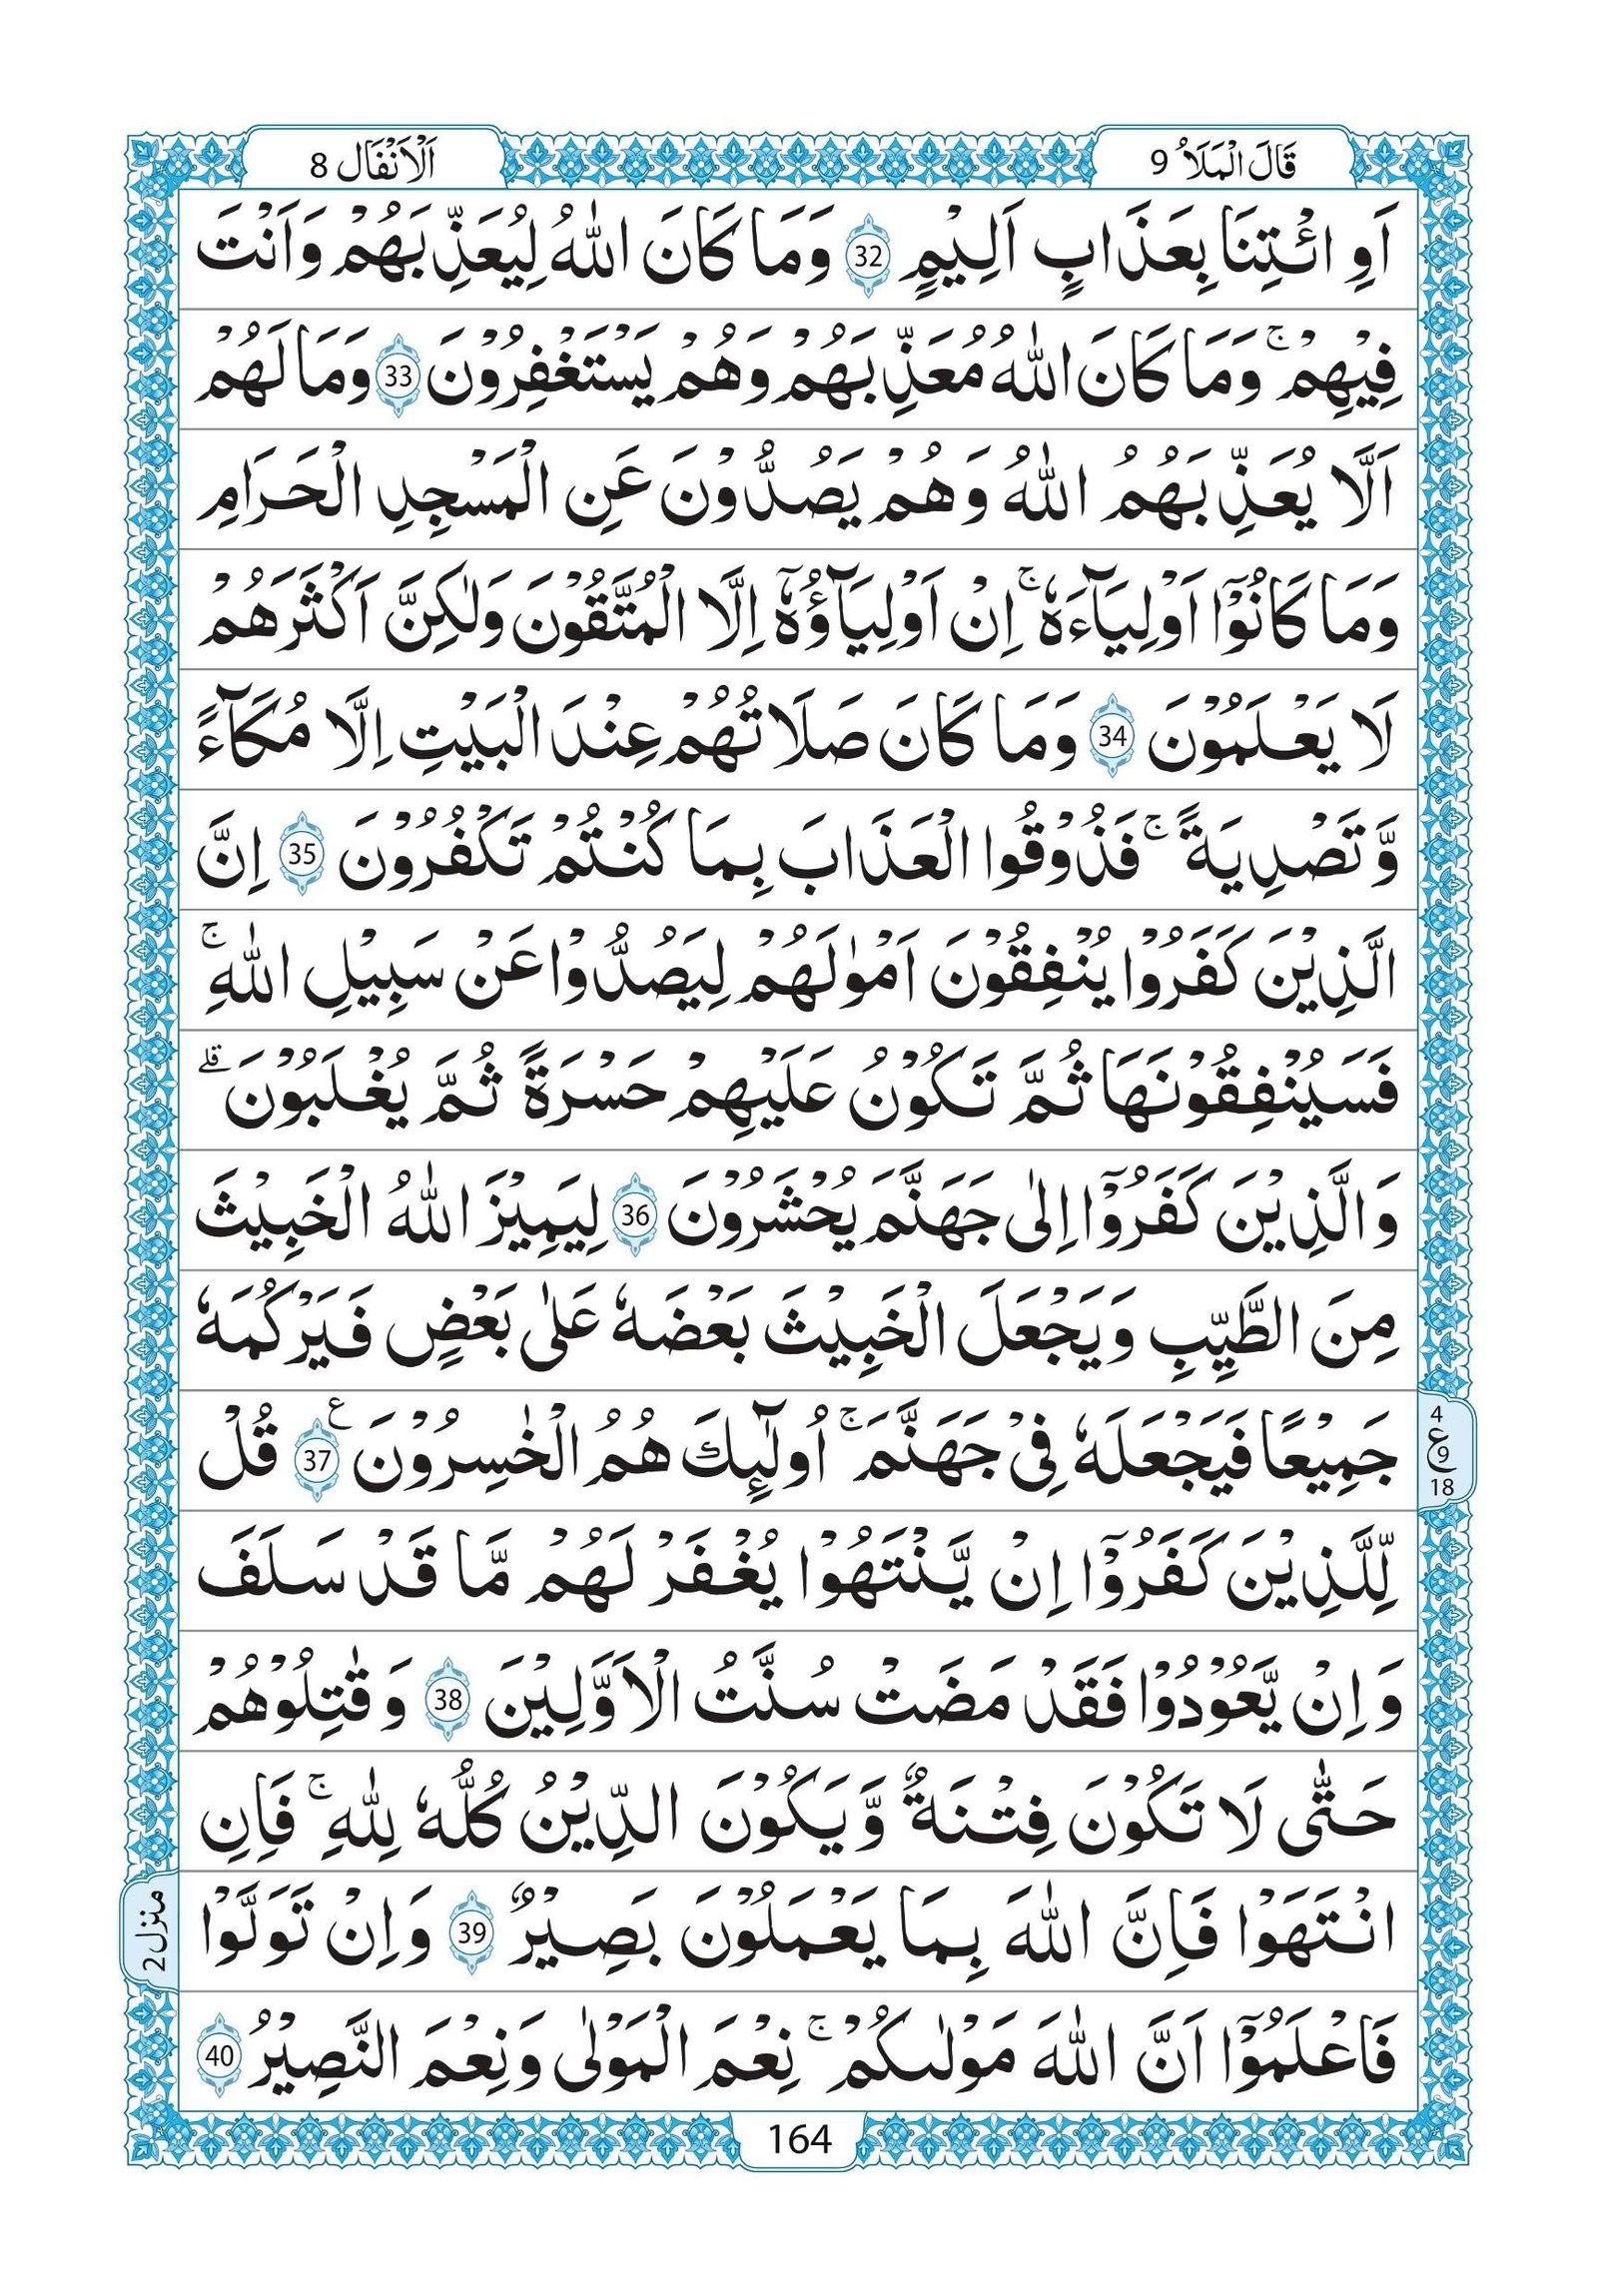 قَالَ الْمَلَاُ 9
اَلْاَنْفَال 8
اَوِ ائْتِنَا بِعَذَابٍ اَلِيْمٍ 32 وَمَا كَانَ اللّٰهُ لِيُعَذِّبَهُمْ وَاَنْتَ
فِيْهِمْ ۚ وَمَا كَانَ اللّٰهُ مُعَذِّبَهُمْ وَهُمْ يَسْتَغْفِرُوْنَ 33 وَمَا لَهُمْ
اَلَّا يُعَذِّبَهُمُ اللّٰهُ وَهُمْ يَصُدُّوْنَ عَنِ الْمَسْجِدِ الْحَرَامِ
وَمَا كَانُوْٓا اَوْلِيَآءَهٗ ۚ اِنْ اَوْلِيَآؤُهٗٓ اِلَّا الْمُتَّقُوْنَ وَلٰكِنَّ اَكْثَرَهُمْ
لَا يَعْلَمُوْنَ 34 وَمَا كَانَ صَلَاتُهُمْ عِنْدَ الْبَيْتِ اِلَّا مُكَآءً
وَّتَصْدِيَةً ۚ فَذُوْقُوا الْعَذَابَ بِمَا كُنْتُمْ تَكْفُرُوْنَ 35 اِنَّ
الَّذِيْنَ كَفَرُوْا يُنْفِقُوْنَ اَمْوٰلَهُمْ لِيَصُدُّوْا عَنْ سَبِيْلِ اللّٰهِ ۚ
فَسَيُنْفِقُوْنَهَا ثُمَّ تَكُوْنُ عَلَيْهِمْ حَسْرَةً ثُمَّ يُغْلَبُوْنَ ۗ
وَالَّذِيْنَ كَفَرُوْٓا اِلٰى جَهَنَّمَ يُحْشَرُوْنَ 36 لِيَمِيْزَ اللّٰهُ الْخَبِيْثَ
مِنَ الطَّيِّبِ وَيَجْعَلَ الْخَبِيْثَ بَعْضَهٗ عَلٰى بَعْضٍ فَيَرْكُمَهٗ
جَمِيْعًا فَيَجْعَلَهٗ فِيْ جَهَنَّمَ ۚ اُولٰٓئِكَ هُمُ الْخٰسِرُوْنَ 37 ع قُلْ
4 ع 9 18
لِّلَّذِيْنَ كَفَرُوْٓا اِنْ يَّنْتَهُوْا يُغْفَرْ لَهُمْ مَّا قَدْ سَلَفَ
وَاِنْ يَّعُوْدُوْا فَقَدْ مَضَتْ سُنَّتُ الْاَوَّلِيْنَ 38 وَقٰتِلُوْهُمْ
حَتّٰى لَا تَكُوْنَ فِتْنَةٌ وَّيَكُوْنَ الدِّيْنُ كُلُّهٗ لِلّٰهِ ۚ فَاِنِ
انْتَهَوْا فَاِنَّ اللّٰهَ بِمَا يَعْمَلُوْنَ بَصِيْرٌ 39 وَاِنْ تَوَلَّوْا
منزل 2
فَاعْلَمُوْٓا اَنَّ اللّٰهَ مَوْلٰىكُمْ ۚ نِعْمَ الْمَوْلٰى وَنِعْمَ النَّصِيْرُ 40
164